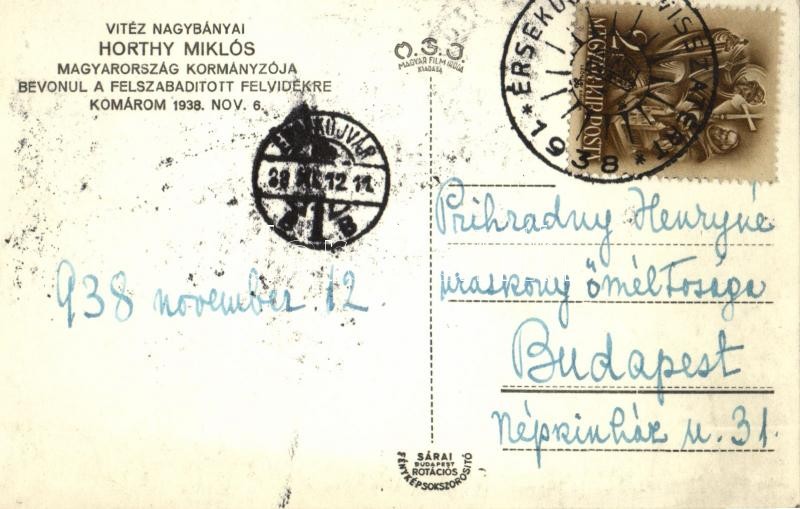 VITÉZ NAGYBÁNYAI
HORTHY MIKLÓS
MAGYARORSZÁG KORMÁNYZÓJA
BEVONUL A FELSZABADITOTT FELVIDÉKRE
KOMÁROM 1938. NOV. 6.
O.S.J.
MAGYAR FILM IRODA
KIADÁSA
* ÉRSEKUJVÁR VISSZATÉRT *
1938
2
MAGYAR KIR. POSTA
ÉRSEKUJVÁR
38 XI. 12 11
1
B
938 november 12.
Prihradny Henryné
uraskony őméltósága
Budapest
Népszinház u. 31.
SÁRAI
BUDAPEST
ROTÁCIÓS
FÉNYKÉPSOKSZOROSITÓ